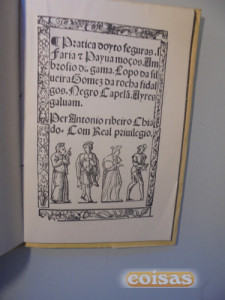 Pratica doyto feguras.
Faria & Payua moços. Am
brosio d. gama. Lopo da sil
ueira Gomez da rocha fidal
gos. Negro Capelã. Ayres
galuam.
Per Antonio ribeiro Chia
do. Com Real priuilegio.
coisas